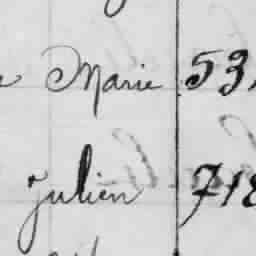 Marie 53
Julien 718